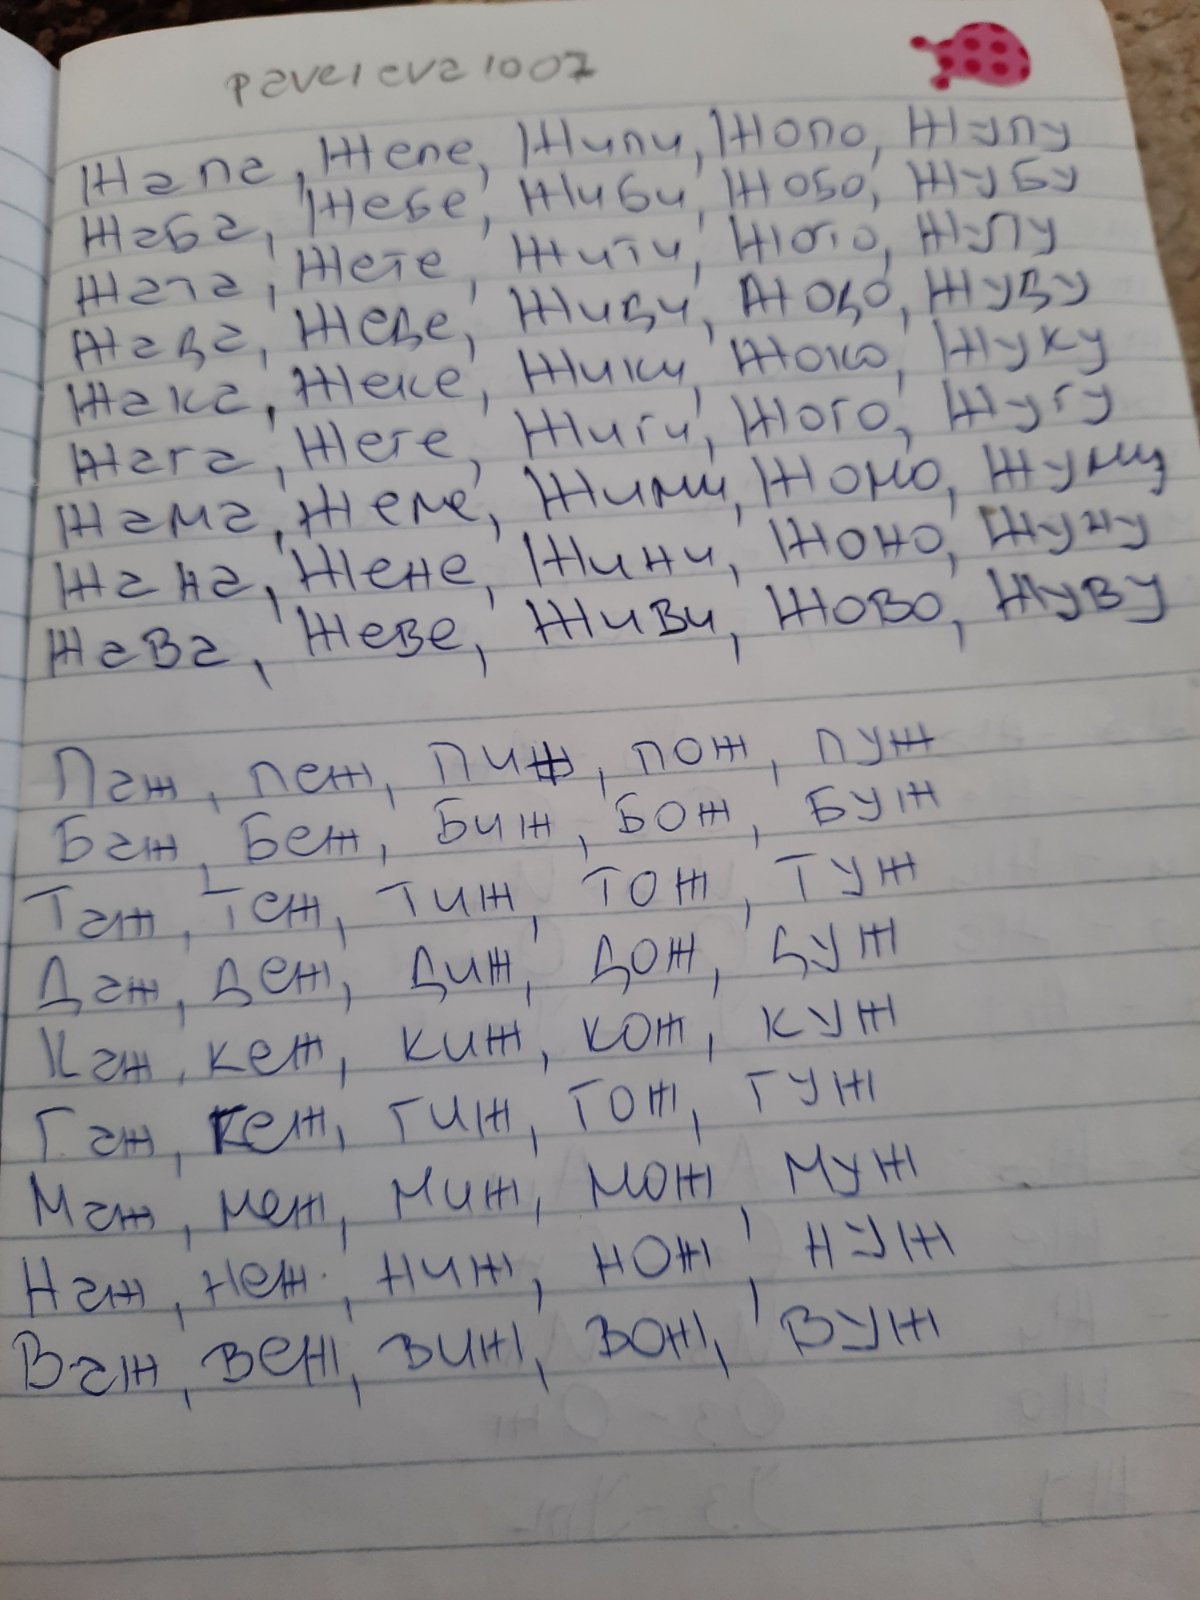 paveleva1007
Жапа, Жепе, Жипи, Жопо, Жупу
Жаба, Жебе, Жиби, Жобо, Жубу
Жата, Жете, Жити, Жото, Жупу
Жада, Жеде, Жиди, Жодо, Жуду
Жака, Жеке, Жики, Жоко, Жуку
Жага, Жеге, Жиги, Жого, Жугу
Жама, Жеме, Жими, Жомо, Жуму
Жана, Жене, Жини, Жоно, Жуну
Жава, Жеве, Живи, Жово, Жуву
Паж, пеж, пиж, пож, пуж
Баж, Беж, Биж, Бож, Буж
Таж, Теж, тиж, тож, туж
Даж, деж, диж, дож, дуж
Каж, кеж, киж, кож, куж
Гаж, геж, гиж, гож, гуж
Маж, меж, миж, мож муж
Наж, неж, ниж, нож, нуж
Важ, веж, виж, вож, вуж